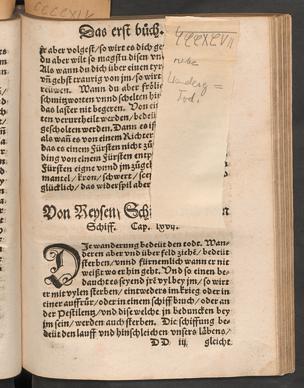 CCCCXIV
Das erst büch.
CCCCXLVII
ir aber volgest/so wirt es dich ge
du aber wilt so magstu disen vn
Als wann du dich über einen tyr
vn gehst traurig von jm/so wirt
Wann du aber frölic
schmitzworten vnnd schelten hin
das laster nit begeren. Von ein
ten verurtheilt werden/bedeüt
gescholten werden. Dann es ist
als wann es von einem Richter
das es einem Fürsten nicht zü
ding von einem Fürsten entp
Fürsten eigne vnnd jm zügeh
mantel/kron/schwert/scep
glücklich/das widerspil aber
Von Reysen/
Schiff. Cap. lxvij.
DJe wanderung bedeüt den todt. Wan-
deren aber vnd über feld ziehe/bedeüt
sterben/vnnd fürnemlich wann er nit
weißt wo er hin geht. Vnd so einen be-
daucht es seyend jrē vyl bey jm/so wirt
er mit vylen sterben/eintweders im krieg oder in
einer auffrür/oder in einem schiffbuch/oder an
der Pestilentz/vnd dise welche jn beduncken bey
jm sein/werden auch sterben. Die schiffung be-
deüt den lauff vnd hinschleichen vnsers läbens/
DD iij gleicht